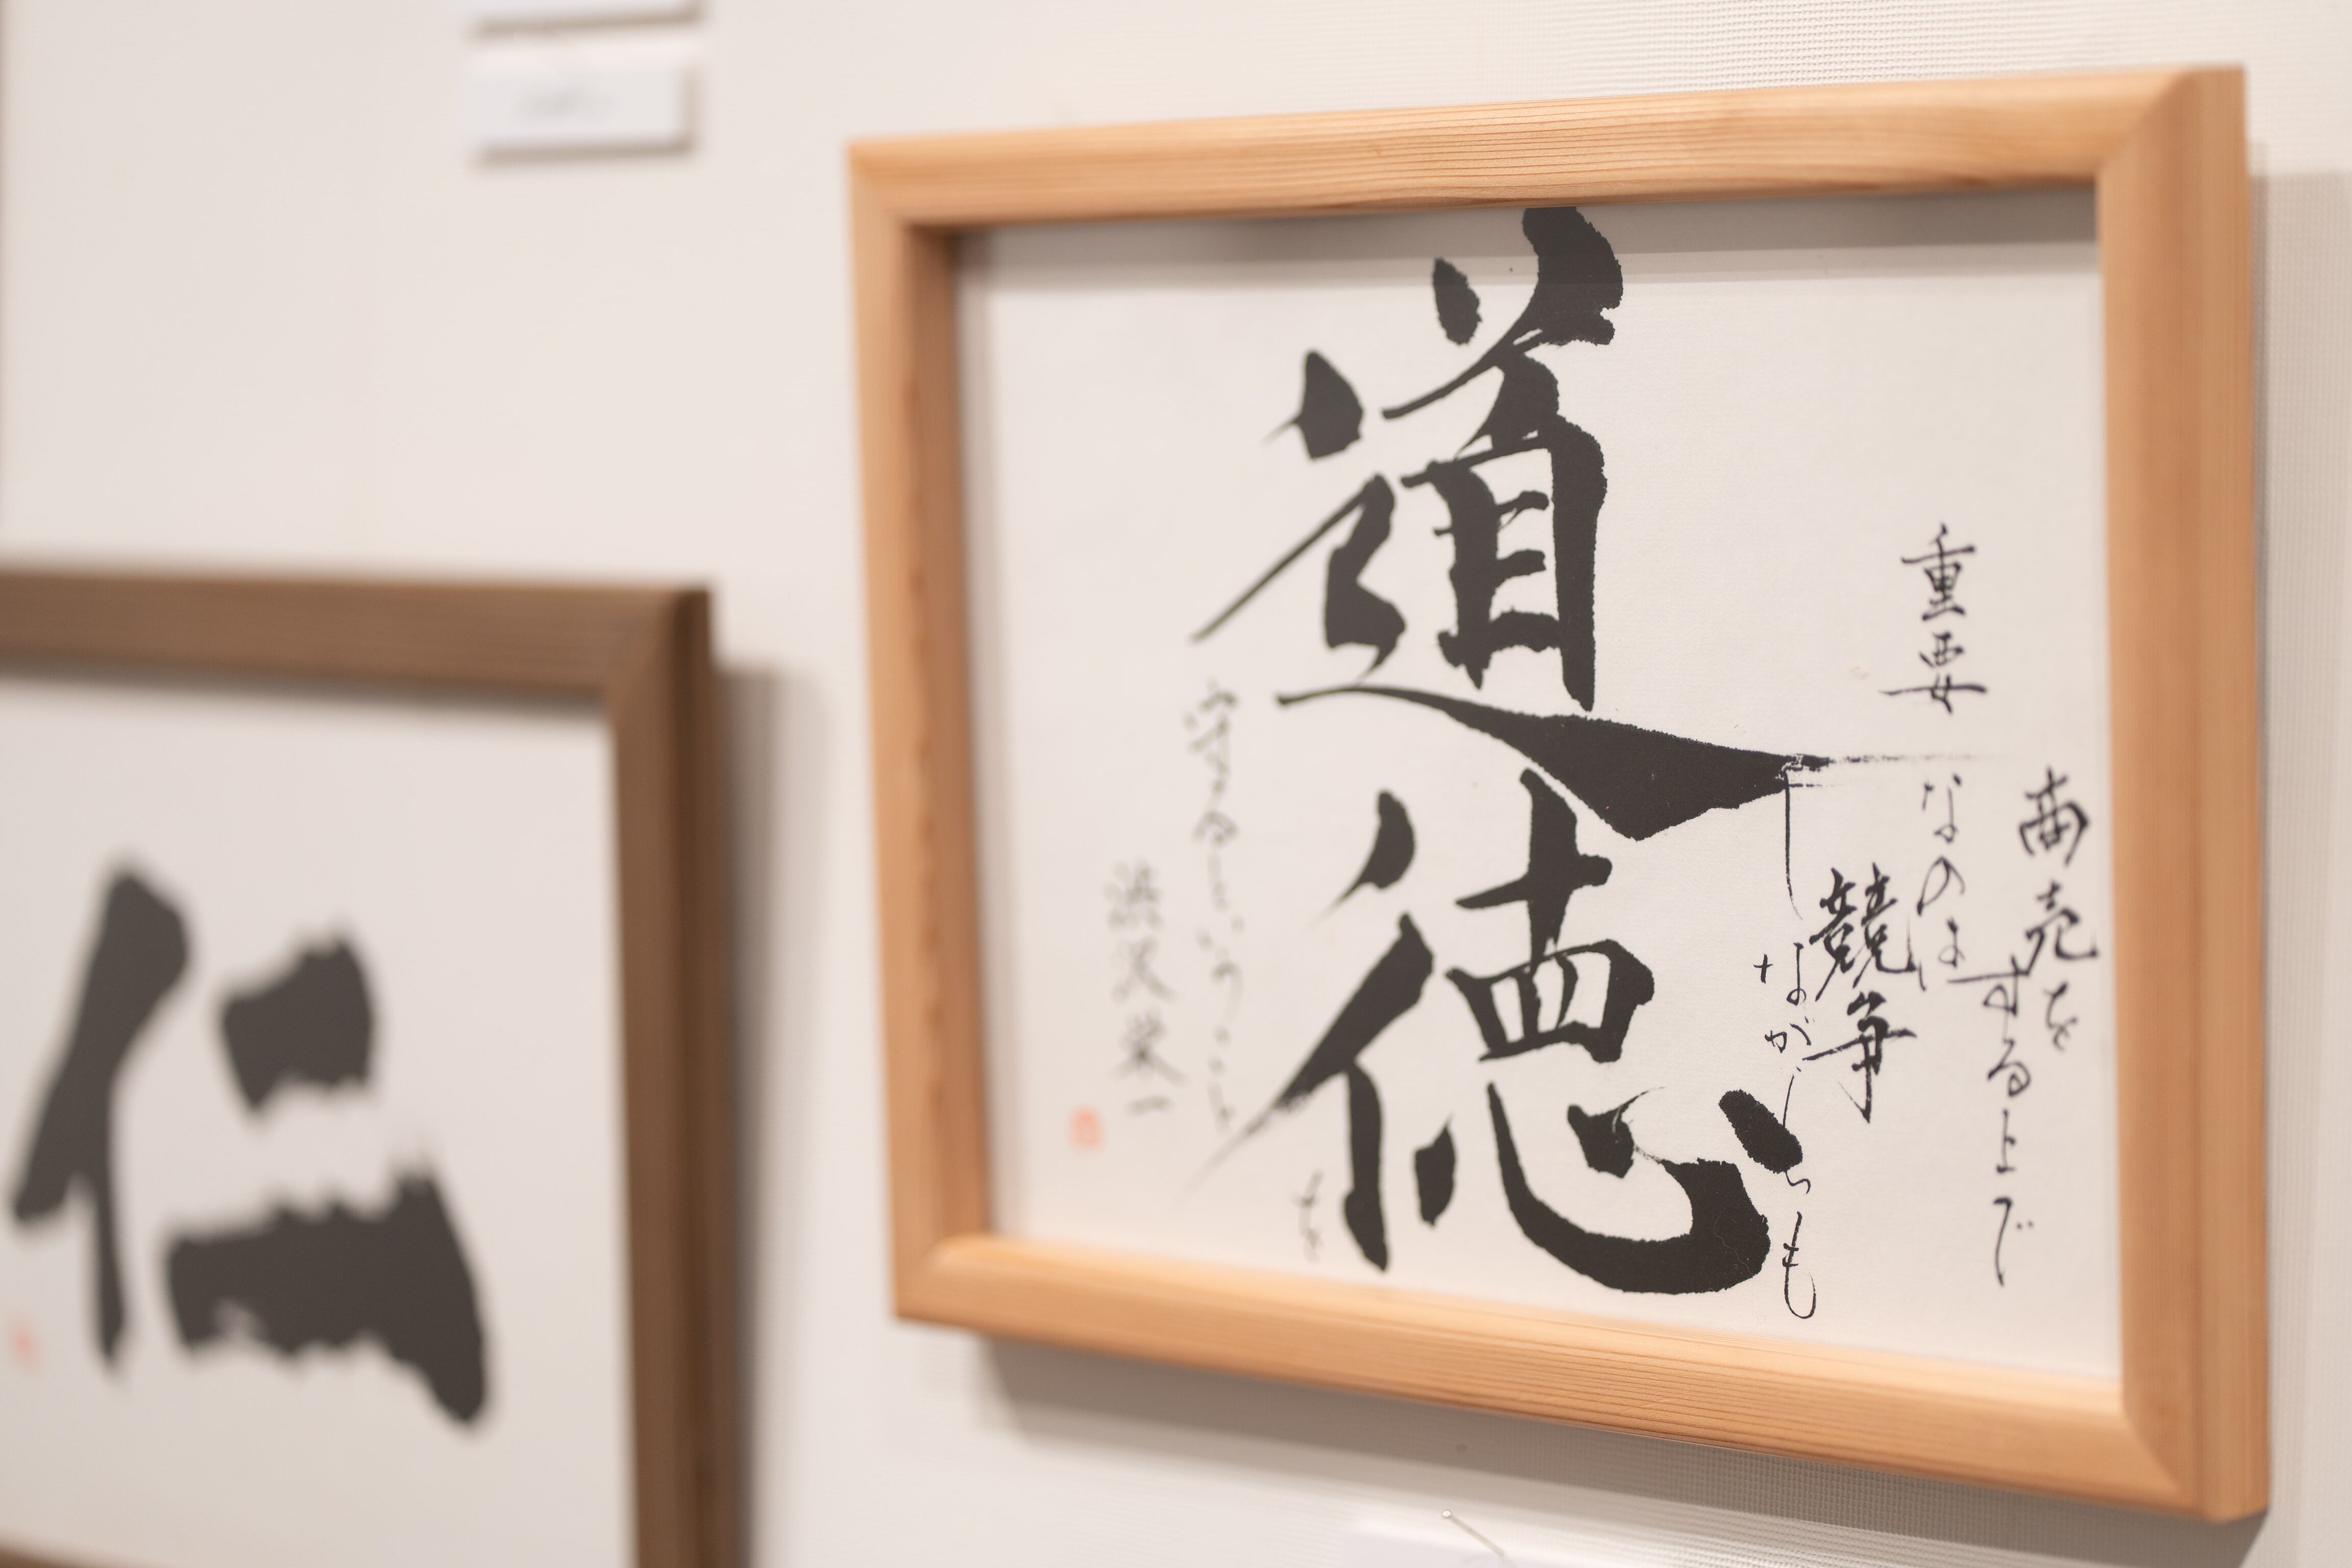 商売を
する上で
重要
なのは
競争
しながらも
道徳
を
守るということ
渋沢栄一
仁